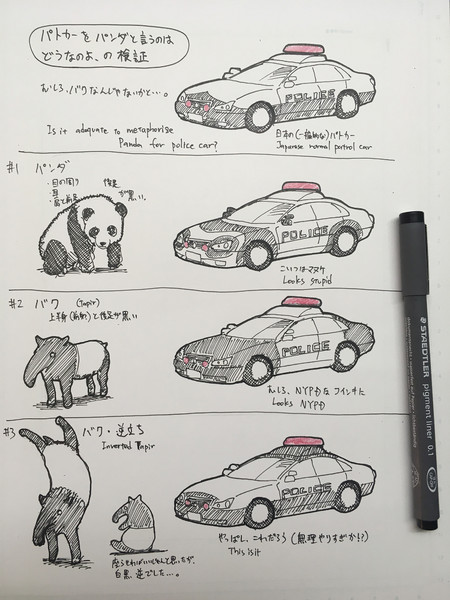 パトカーをパンダと言うのは
どうなのよ、の検証
むしろ、バクなんじゃないかと…。
Is it adequate to metaphorize
Panda for police car?
POLICE
日本の(一般的な)パトカー
Japanese normal patrol car
#1 パンダ
・目の周り
・耳
・肩と前足
後足
が黒い。
POLICE
こいつはマヌケ
Looks stupid
#2 バク (Tapir)
上半身(前部)と後足が黒い
POLICE
むしろ、NYPDなフインキに
Looks NYPD
#3 バク・逆立ち
Inverted Tapir
POLICE
やっぱし、これだろう(無理やりすぎか!?)
This is it
座らせればいいじゃんと思ったが、
白黒逆でした…。
STAEDTLER
pigment liner 0.1